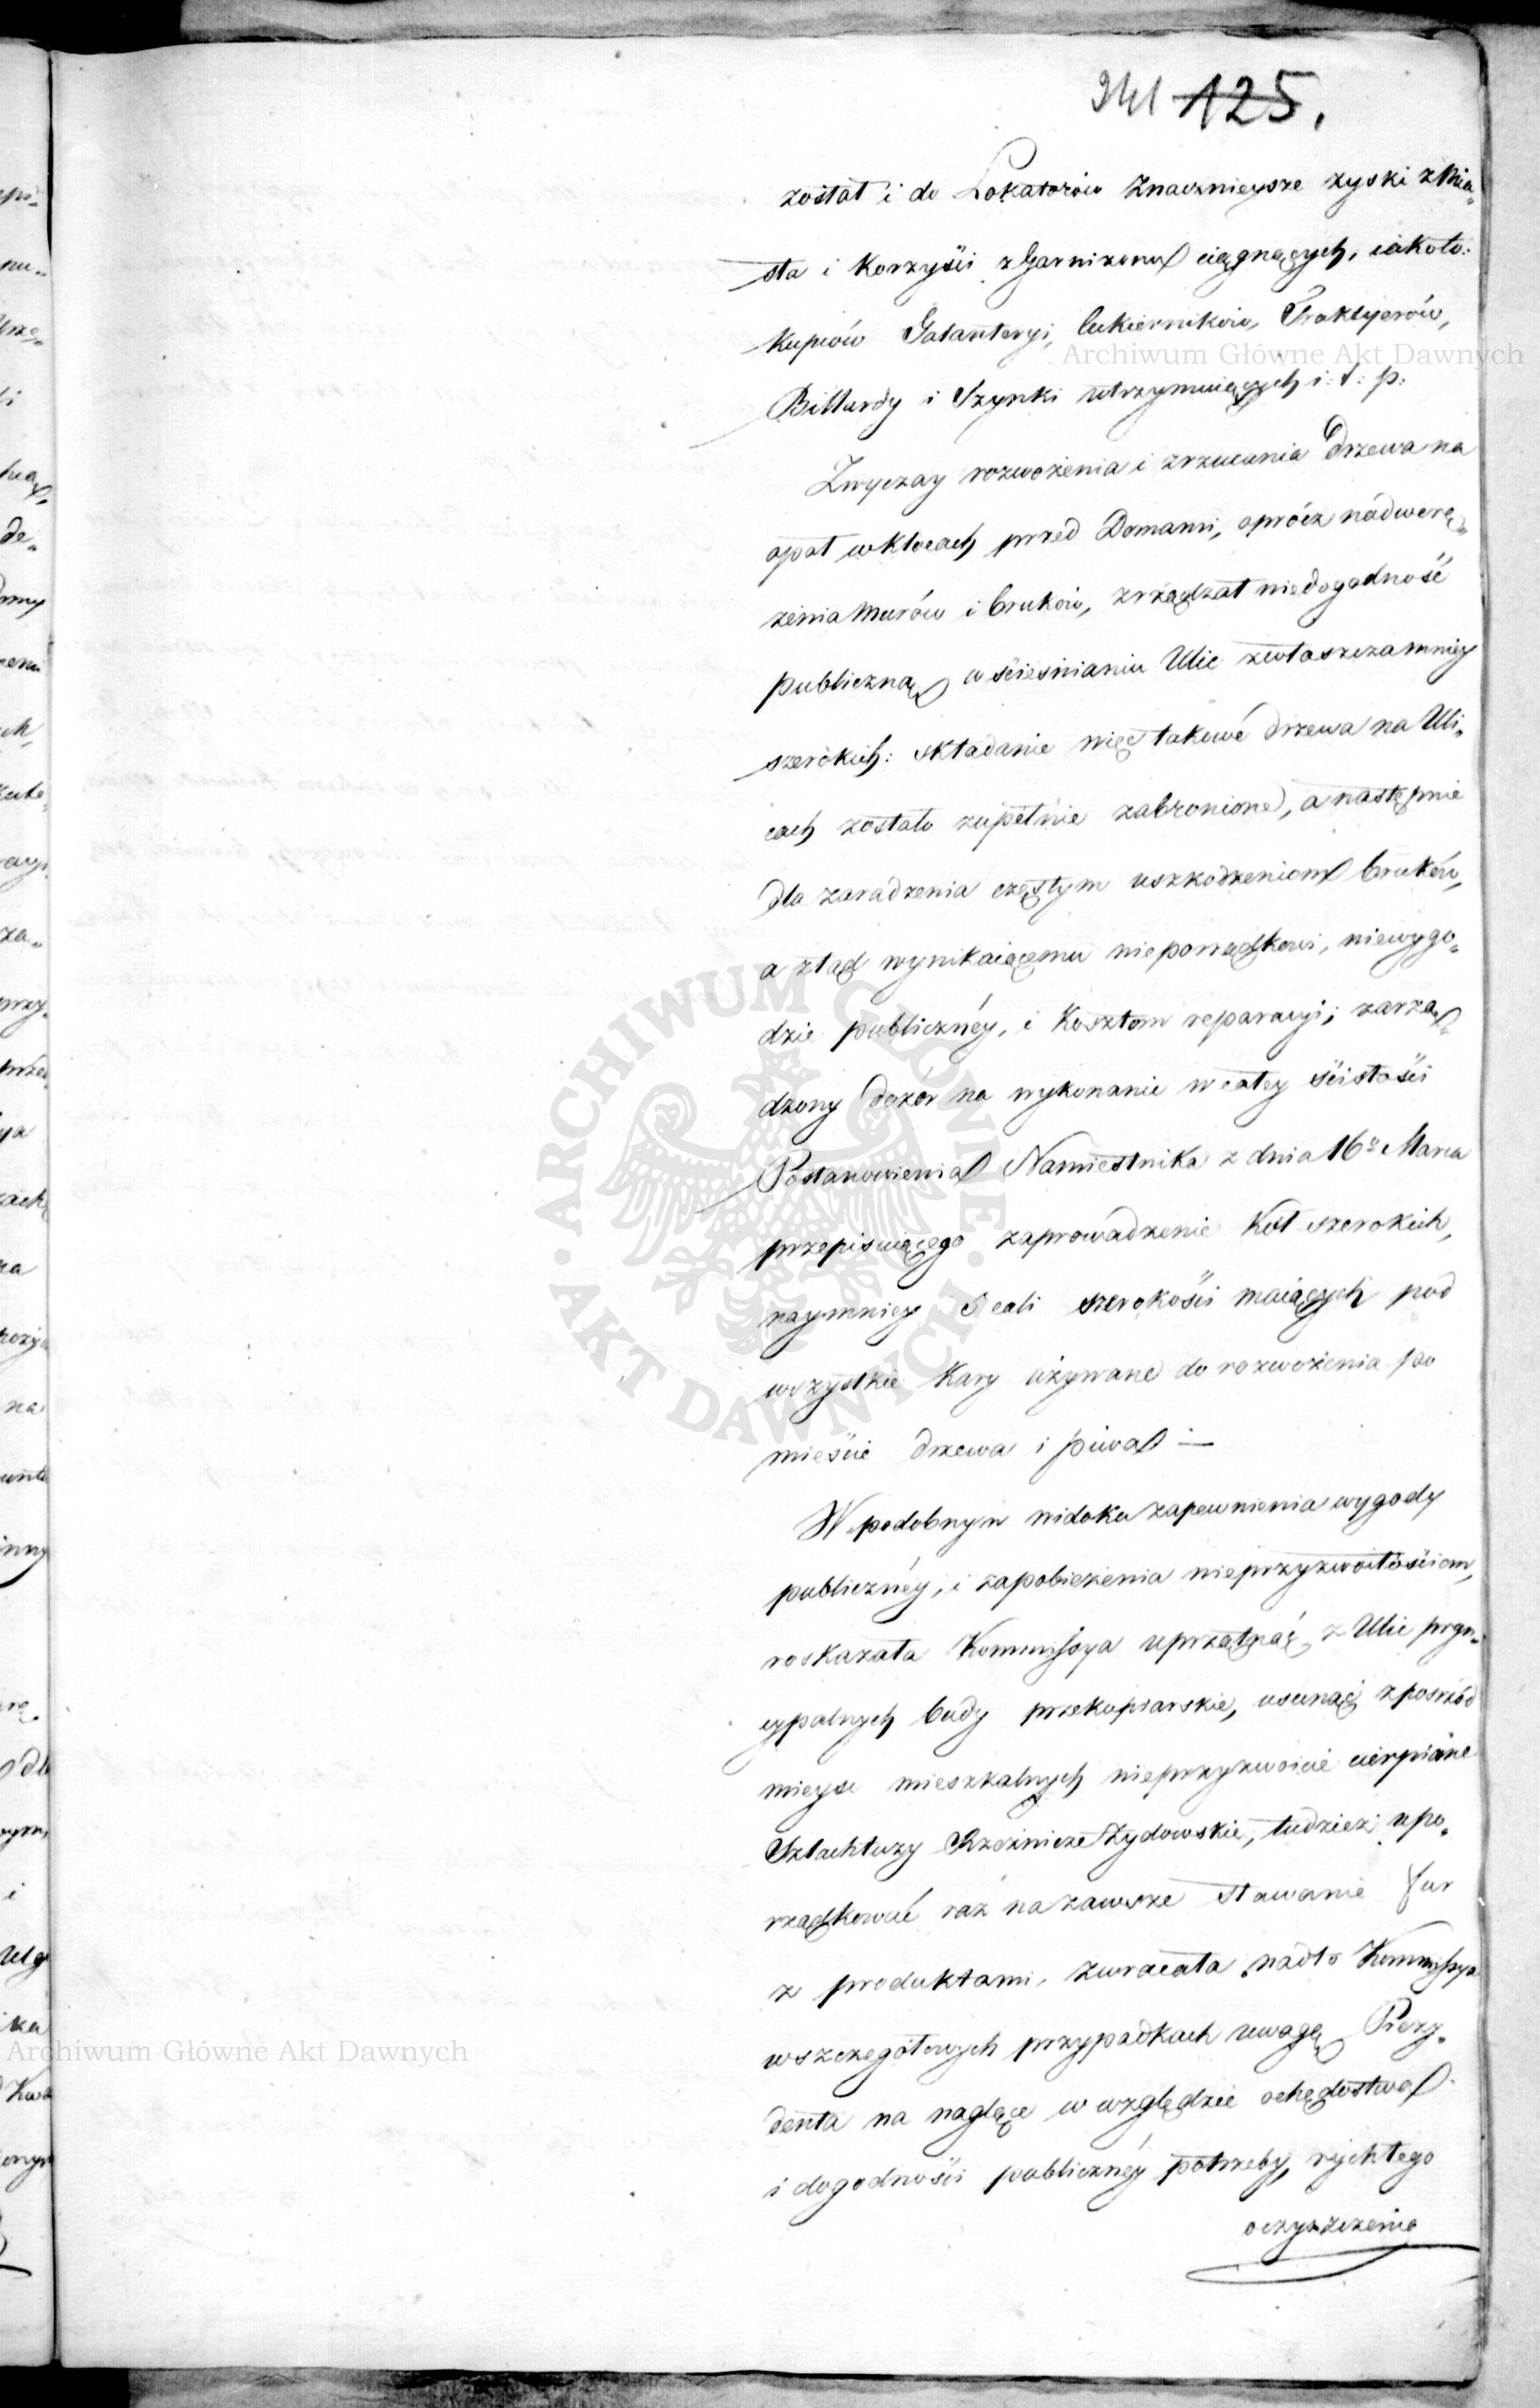 341 125.
został i do Lokatorów znacznieysze zyski z Mia„
sta i korzyści z Garnizonu ciągnących, iakoto:
Kupców Galanteryi, Cukierników, Traktyerów,
Billardy i Szynki utrzymuiących i: t: p:
Zwyczay rozwożenia i zrzucania drzewa na
opał w klocach przed Domami, oprócz nadwerę„
żenia murów i bruków, zrządzał niedogodność
publiczną w ścieśnianiu Ulic zwłaszcza mniey
szerokich: składanie więc takowe drzewa na Uli„
cach zostało zupełnie zabronione, a następnie
dla zaradzenia częstym uszkodzeniom bruków,
a ztąd wynikaiącemu nieporządkowi, niewygo„
dzie publiczney, i Kosztom reparacyi; zarzą„
dzony dozór na wykonanie w całey ścisłości
Postanowienia Namiestnika z dnia 16º Marca
przepisuiącego zaprowadzenie Kół szerokich,
naymniey 5 cali szerokości maiących pod
wszystkie Kary używane do rozwożenia po
mieście drzewa i piwa –
W podobnym widoku zapewnienia wygody
publiczney, i zapobieżenia nieprzyzwoitościom,
roskazała Kommissya uprzątnąć z Ulic pryn„
cypalnych budy przekupiarskie, usunąć z pośrzód
mieysc mieszkalnych nieprzyzwoicie cierpiane
Szlachtuzy Rzeźnicze Żydowskie, tudzież upo„
rządkować raz na zawsze stawanie fur
z produktami, zwracała nadto Kommissya
w szczegółowych przypadkach uwagę Prezy„
denta na naglące w względzie ochędostwa
i dogodności publiczney potrzeby, rychłego
oczyszczenia
Archiwum Główne Akt Dawnych
ARCHIWUM GŁÓWNE AKT DAWNYCH
Archiwum Główne Akt Dawnych